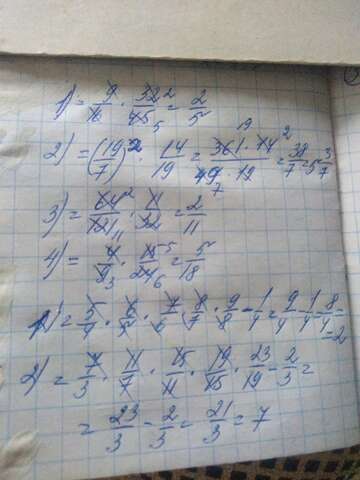 1) = 9/16 · 32/45 = 2/5
2) = (19/7)² · 14/19 = 361·14/49·19 = 38/7 = 5 3/7
3) = 64/121 · 11/32 = 2/11
4) = 4/9 · 15/24 = 5/18
1) = 5/4 · 6/5 · 7/6 · 8/7 · 9/8 - 1/4 = 9/4 - 1/4 = 8/4 = 2
2) = 7/3 · 11/7 · 15/11 · 19/15 · 23/19 - 2/3 =
= 23/3 - 2/3 = 21/3 = 7